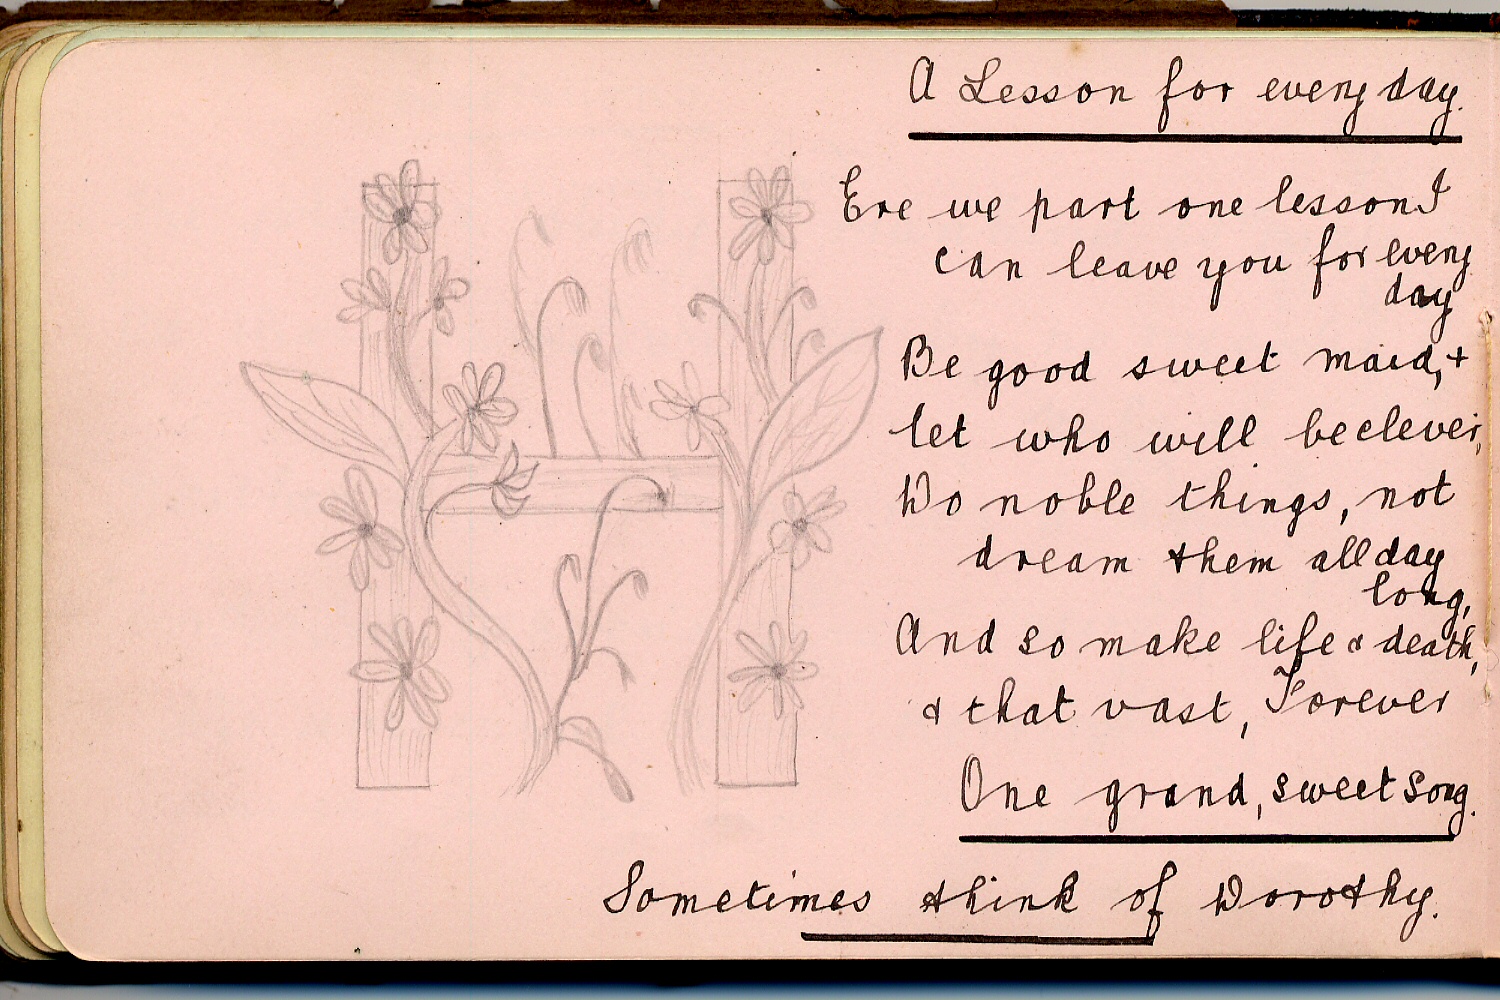 A Lesson for every day.
Ere we part one lesson I
can leave you for every
day
Be good sweet maid, +
let who will be clever,
Do noble things, not
dream them all day
long,
And so make life & death,
& that vast, Forever
One grand, sweet song.
Sometimes think of Dorothy.